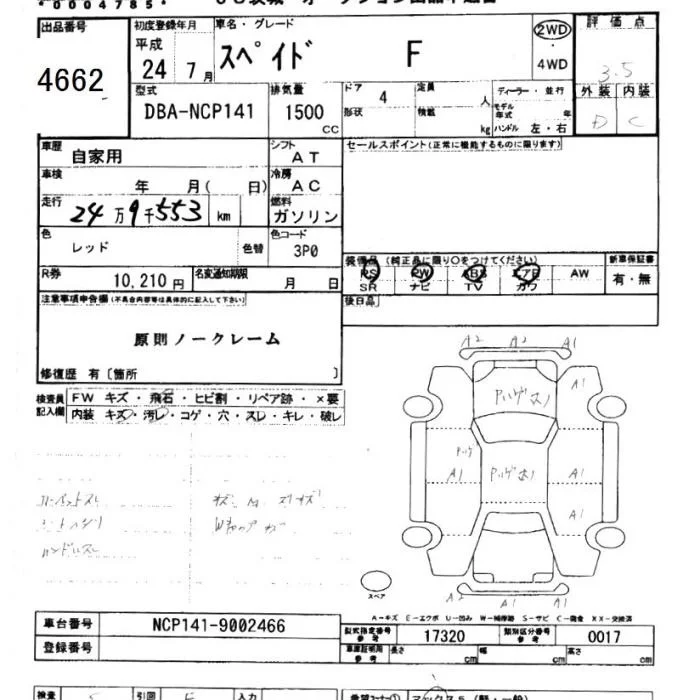 *0004785*
出品番号 初度登録年月 車名・グレード 評価点
平成 スペイド F 2WD
4662 24 7月 ・ 3.5
4WD
型式 排気量 ドア 4 定員 人 ディーラー・並行 外装 内装
DBA-NCP141 1500 CC 形状 積載 kg モデル年式 年 D C
ハンドル 左・右
車歴 自家用 シフト AT セールスポイント(正常に機能するものに限ります)
車検 年 月( 日) 冷房 AC
走行 24万9千553 km 燃料 ガソリン
色 レッド 色替 色コード 3P0
装備品 (純正品に限り○をつけてください) 新車保証書
R券 10,210円 名変通知期限 月 日 PS PW ABS エアB AW 有・無
SR ナビ TV カワ
注意事項申告欄(不具合内容等は具体的に記入して下さい) 後日品
原則ノークレーム
修復歴 有〔箇所 〕
A2 A2 A1
検査員記入欄 FW キズ・飛石・ヒビ割・リペア跡・×要
内装 キズ・汚レ・コゲ・穴・スレ・キレ・破レ
A1
A1 A1
A1
ハンドルスレ
スペア
A2 A1
A-キズ E-エクボ U-凹み W-補修跡 S-サビ C-腐食 XX-交換済
車台番号 NCP141-9002466
型式指定番号参考 17320 類別区分番号参考 0017
登録番号 車庫証明用参考 長さ cm 幅 cm 高さ cm
検査 引回 入力